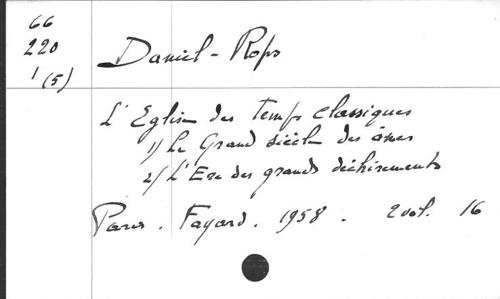 66
220
1 (5)
Daniel-Rops
L'Eglise des Temps classiques
1) Le Grand siècle des âmes
2) L'Ere des grands déchirements
Paris. Fayard. 1958. 2 vol. 16